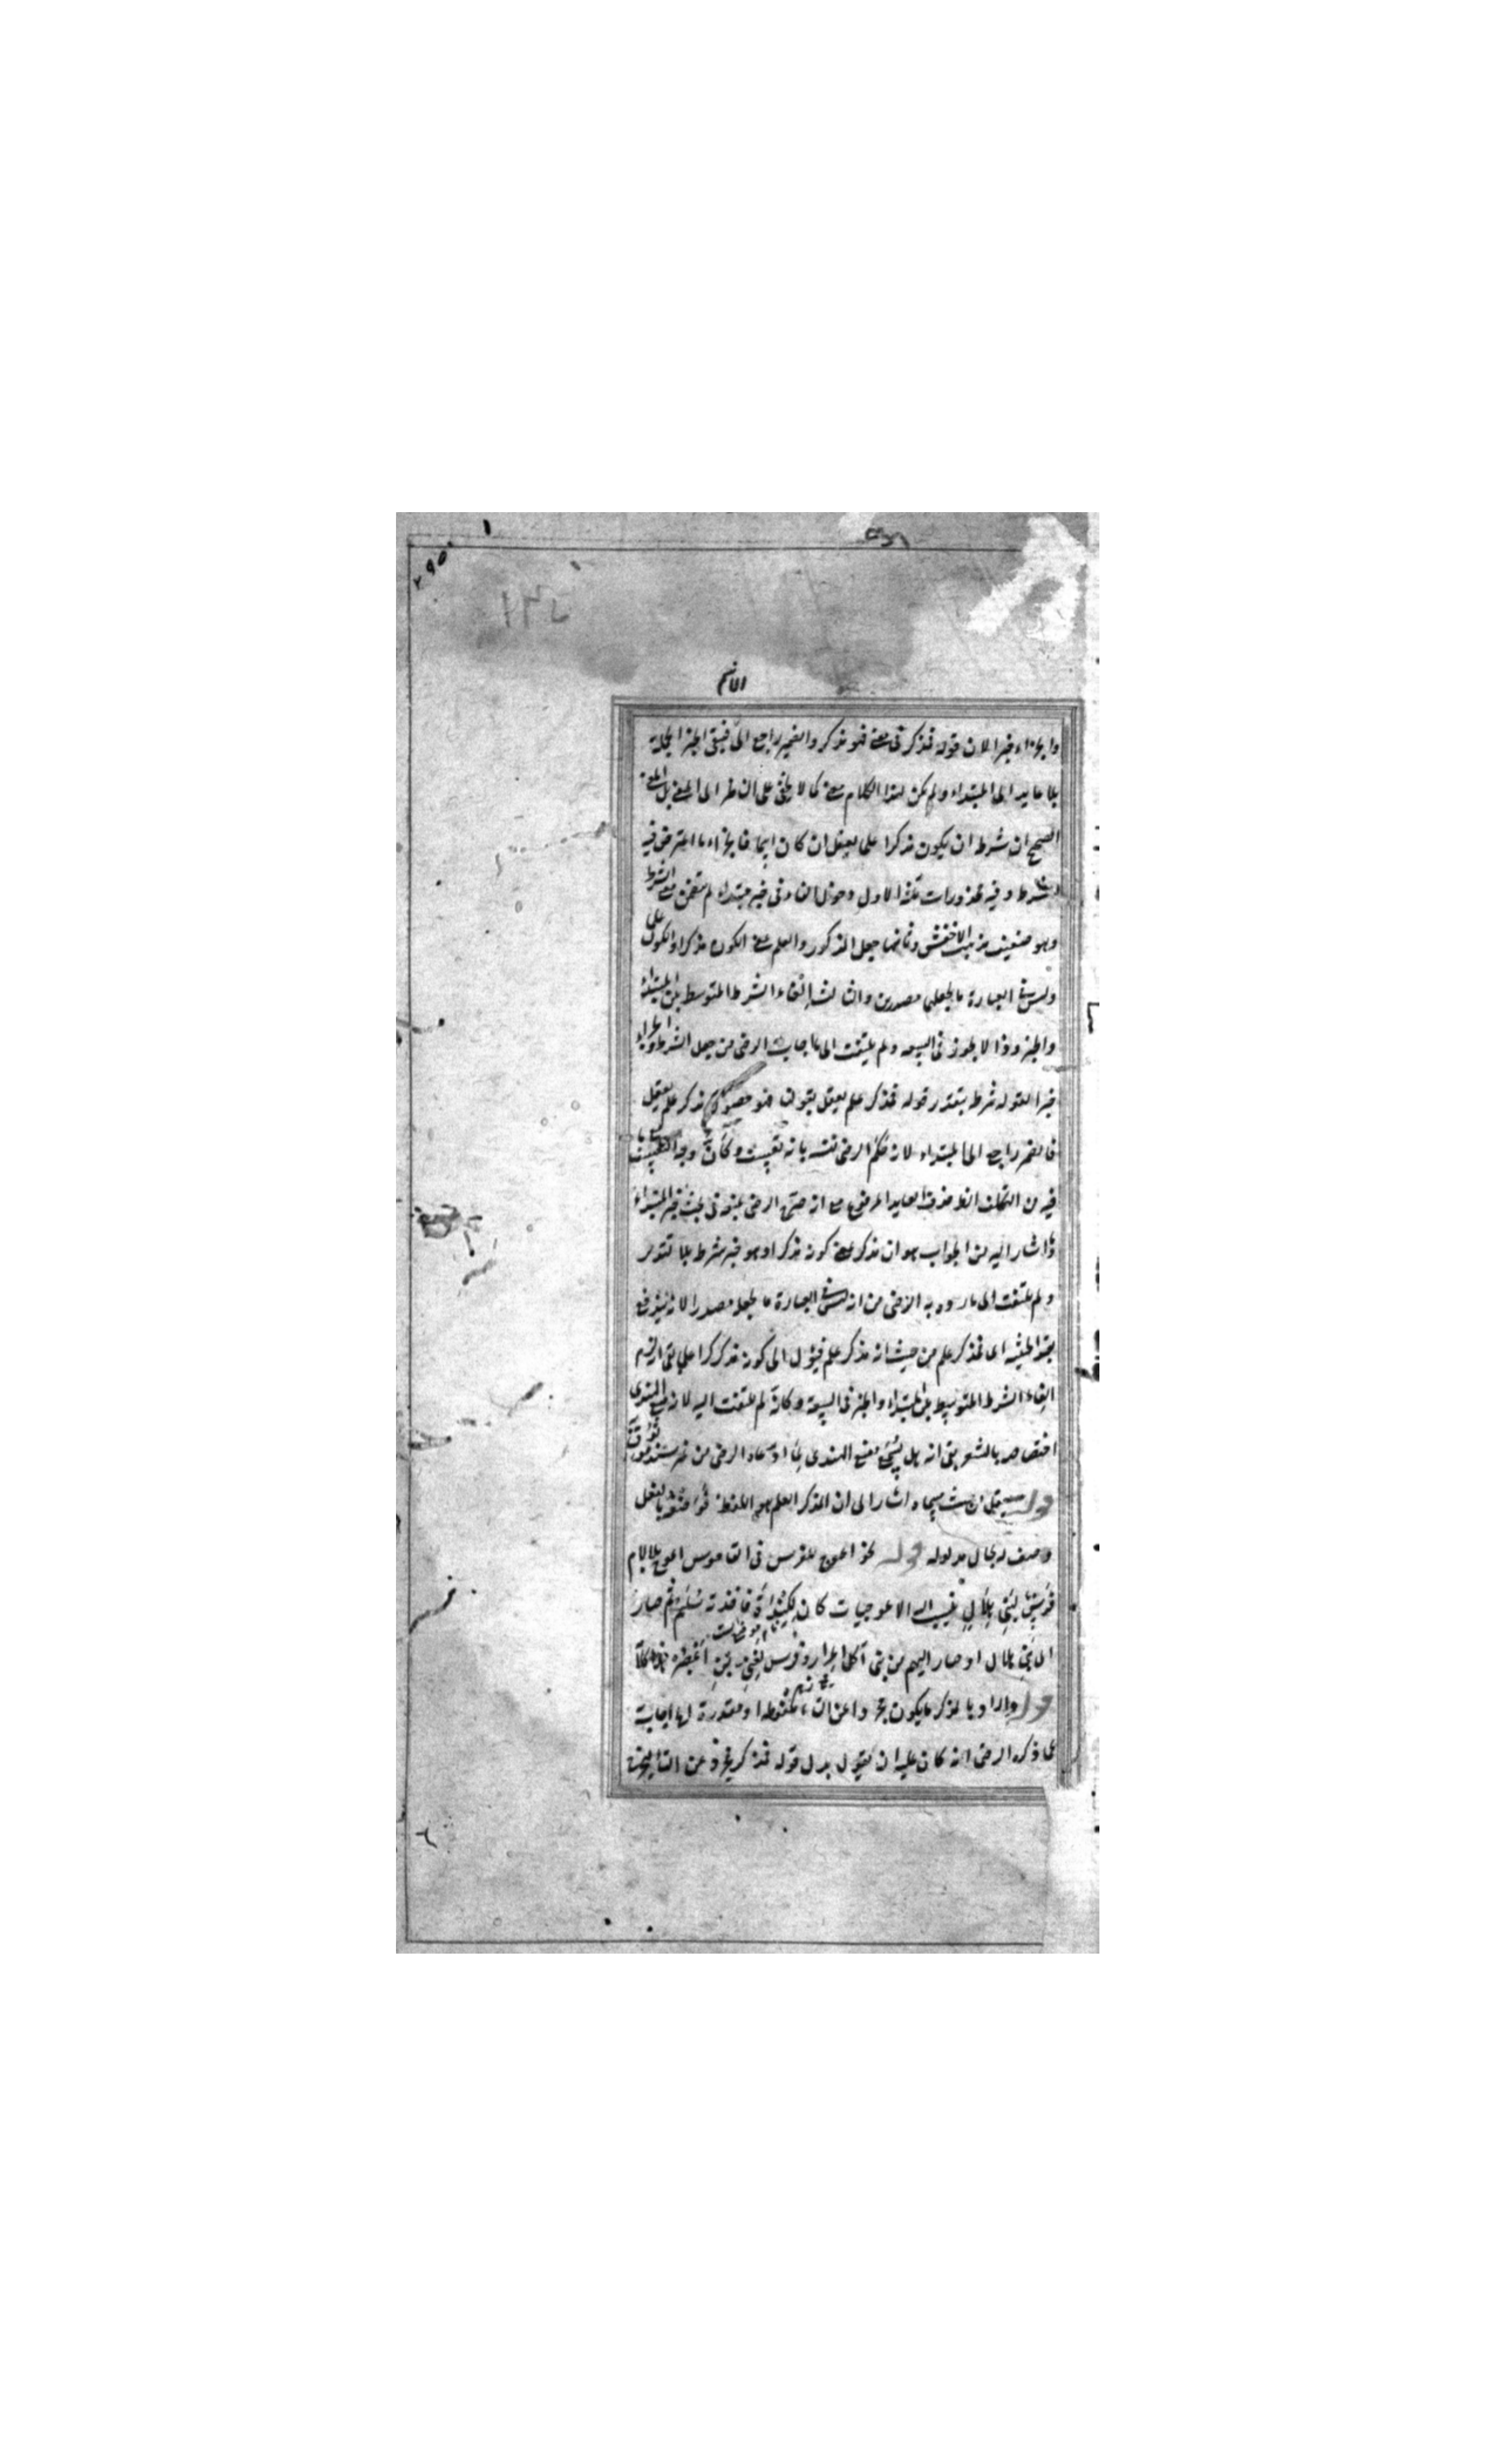 الاسم
والجزاء خبرا لان قوله فمذكر في معنى فهو مذكر والضمير راجع الى فيبقى الخبر الجملة
بلا عايد الى المبتداء ولم يكن لهذا الكلام معنى كما لا يخفى على الناظر الى المعنى بل المعنى
الصحيح ان شرط ان يكون مذكرا على يعقل ان كان اسما فالجزاء ما اعترض فيه
الشرط وفيه محذورات ثلثة الاول دخول الفاء في خبر مبتداء لم يتضمن معنى الشرط
وهو ضعيف مذهب الاخفش وثانيها جعل المذكور والعلم معنى الكون مذكرا والكون على
وليس في العبارة ما يجعلهما مصدرين والثالث الغاء الشرط المتوسط بين المبتداء
والخبر وذا لا يجوز في السعة ولم يلتفت الى ما اجاب الرضي من جعل الشرط والجزاء
خبرا لقوله شرط بتقدير قوله فمذكر علم يعقل بقوله فهو حصول مذكر علم يعقل
فالضمير راجع الى المبتداء لان حكم الرضي نفسه بانه تعسف وكان وجه التعسف
فيه من التكلف حذف العايد المرفوع مع انه صرح الرضي بمنعه في بحث خبر المبتداء
وما اشار اليه من الجواب هو ان مذكر معنى كونه مذكرا وهو خبر شرط بلا تقدير
ولم يلتفت الى ما رده به الرضي من انه ليس في العبارة ما يجعله مصدرا لانه يندفع
بقيد الحيثية اى فمذكر علم من حيث انه مذكر علم فيؤل الى كونه مذكرا على بقى لزوم
الغاء الشرط المتوسط بين المبتداء والخبر في السعة وكانه لم يلتفت اليه لانه
اختصاصه بالشعر بقى انه هل يشيء معنى الهندى لما ادعاه الرضي من غير سند
قوله يعقل من حيث مسماه اشار الى ان المذكر العلم هو اللفظ فوصفه بالعقل
وصف بحال مدلوله قوله نحو اعوج للفرس في القاموس اعوج بلا لام
فرس لبنى هلال ينسب اليه الاعوجيات كان لكندة فاخذته سليم ثم صار
الى بنى هلال او صار اليهم من بنى آكل المرار وفرس لغنى بن اعصر
قوله واراد بالمذكر ما يكون مجردا عن التاء ملفوظة او مقدرة لها اجابة
عما ذكره الرضي انه كان عليه ان يقول بدل قوله فمذكر مجرد عن التاء ليخرج